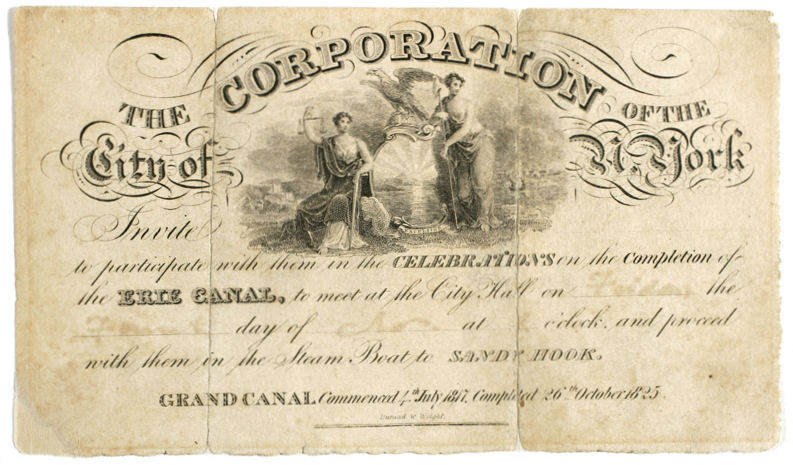 THE CORPORATION OF THE
City of N. York
EXCELSIOR
Invite
to participate with them in the CELEBRATIONS on the Completion of
the ERIE CANAL, to meet at the City Hall on the
day of at o'clock, and proceed
with them in the Steam Boat to SANDY HOOK.
GRAND CANAL Commenced 4th July 1817. Completed 26th October 1825.
Durand & Wright.